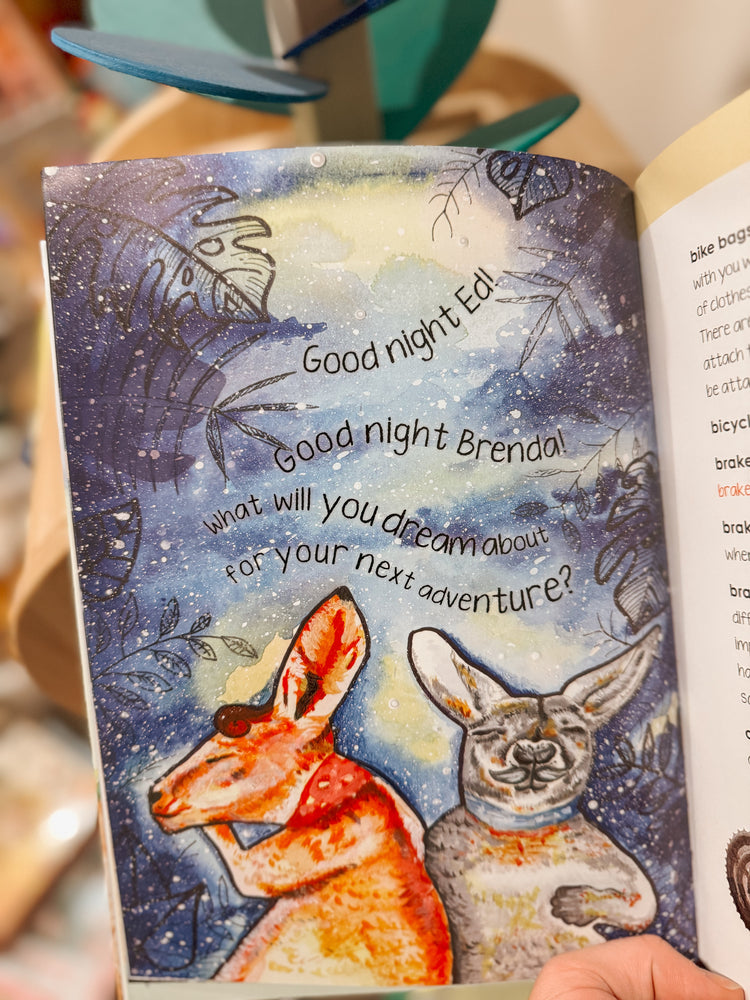 Good night Ed!
Good night Brenda!
What will you dream about
for your next adventure?
bike bags
with you w
of clothes
There are
attach t
be atta
bicycl
brake
brake
brak
when
bra
diff
imp
ha
so